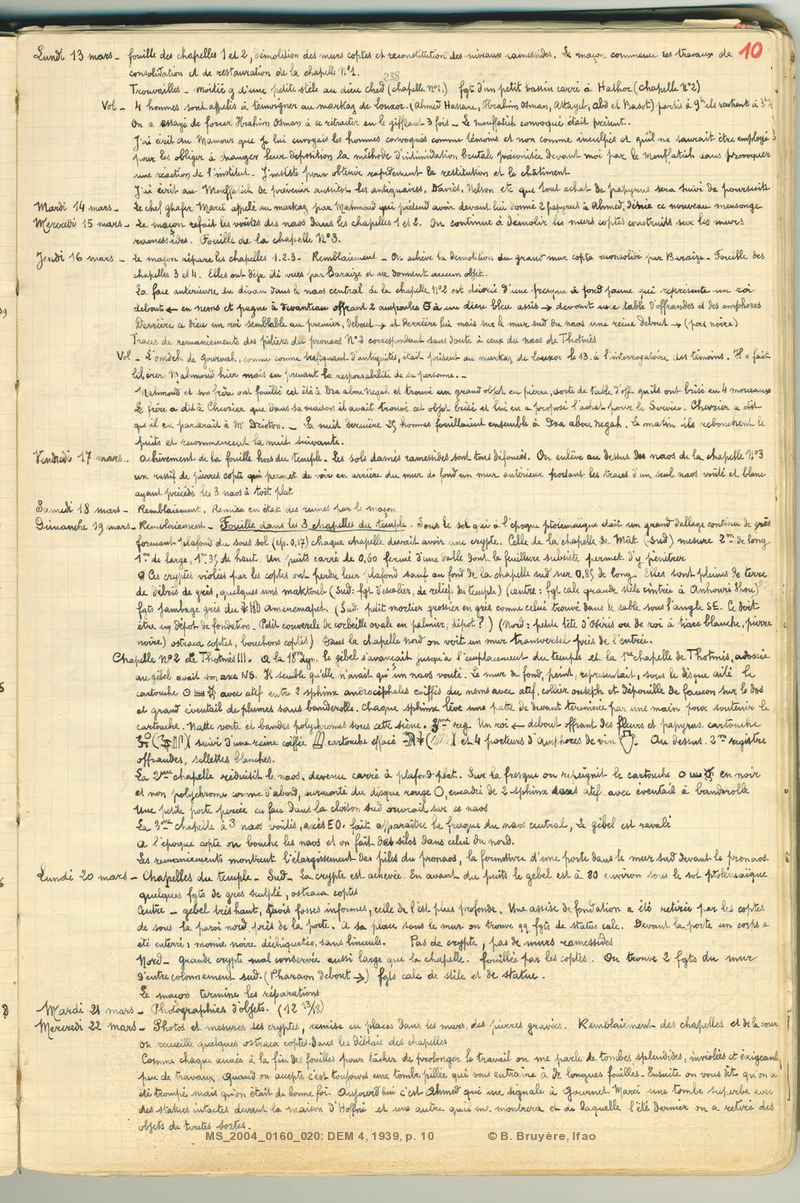 10
Lundi 13 mars - fouille des chapelles 1 et 2, démolition des murs coptes et reconstitution des niveaux ramessides. Le maçon commence les travaux de
consolidation et de restauration de la chapelle N°1.
238
Trouvailles - moitié g d'une petite stèle au dieu ched (chapelle N°1.) fgt d'un petit bassin carré à Hathor (chapelle N°2)
Vol - 4 hommes sont appelés à témoigner au markaz de Louxor. (Ahmed Hassane, Ibrahim Osman, abd el Bassit) partis à 9h ils rentrent à 3h
On a essayé de forcer Ibrahim Osman à se rétracter en le giffant 3 fois - Le moufattich convoqué était présent.
J'ai écrit au Mamour que je lui envoyais les hommes convoqués comme témoins et non comme inculpés et qu'il ne saurait être employé
pour les obliger à changer leur déposition la méthode d'intimidation brutale préconisée devant moi par le Moufattich sans provoquer
une réaction de l'institut. J'insiste pour obtenir rapidement la restitution et le châtiment
J'ai écrit au Moufattich de prévenir aussitôt les antiquaires, Davies, Nelson etc que tout achat de papyrus sera suivi de poursuite
Mardi 14 mars - Le chef ghafir Mareï appelé au markaz par Mahmoud qui prétend avoir devant lui donné 2 papyrus à Ahmed, dénie ce nouveau mensonge
Mercredi 15 mars - Le maçon refait les voûtes des naos dans les chapelles 1 et 2. On continue à démolir les murs coptes construits sur les murs
ramessides. Fouille de la chapelle N°3.
Jeudi 16 mars - Le maçon répare les chapelles 1.2.3 - Remblaiement - On achève la démolition du grand mur copte consolidé par Baraize - Fouille des
chapelles 3 et 4. Elles ont déjà été vues par Baraize et ne donnent aucun objet.
La face antérieure du divan dans le naos central de la chapelle N°2 est décorée d'une fresque à fond jaune qui représente un roi
debout ← en nems et pagne à devanteau offrant 2 ampoules à un dieu bleu assis → devant une table d'offrandes et des amphores
Derrière ce dieu un roi semblable au premier, debout → et derrière lui mais sur le mur sud du naos une reine debout → (peau noire)
Traces de remaniements des piliers du pronaos N°2 correspondant sans doute à ceux du naos de Thotmès
Vol - L'omdeh de Gournah, connu comme trafiquant d'antiquités, était présent au markaz de Louxor le 13 à l'interrogatoire des témoins. Il a fait
libérer Mahmoud hier mais en prenant la responsabilité de sa personne. -
Mahmoud et son frère ont fouillé cet été à Dra abou Negah et trouvé un grand objet en pierre, sorte de table d'off. qu'ils ont brisé en 4 morceaux
Le frère a dit à Chevrier que dans sa maison il avait trouvé cet objet brisé et lui en a proposé l'achat pour le Service. Chevrier a dit
qu'il en parlerait à Mr Drioton. - La nuit dernière 25 hommes fouillaient ensemble à Dra abou negah. Le matin ils rebouchent le
puits et recommencent la nuit suivante.
Vendredi 17 mars. Achèvement de la fouille hors du temple. Les sols dallés ramessides sont tous défoncés. On enlève au dessus des naos de la chapelle N°3
un massif de pierres copte qui permet de voir en arrière du mur de fond un mur antérieur portant les traces d'un seul naos voûté et blanc
ayant précédé les 3 naos à toit plat
Samedi 18 mars - Remblaiement. Remise en état des ruines par le maçon
Dimanche 19 mars - Remblaiement - Fouille dans les 3 chapelles du temple. Sous le sol qui à l'époque ptolémaïque était un grand dallage continu de grès
formant plafond du sous sol (ep. 0,17) chaque chapelle devait avoir une crypte. Celle de la chapelle de Mât. (sud) mesure 2m de long
1m de large, 1m,35 de haut. Un puits carré de 0,60 fermé d'une dalle dont la feuillure subsiste permet d'y pénétrer
Ces cryptes violées par les coptes ont perdu leur plafond sauf au fond de la chapelle sud sur 0,85 de long. Elles sont pleines de terre
de débris de grès, quelques uns maktoub (Sud: fgt d'escalier, de relief du temple) (centre: fgt calc grande stèle cintrée à Anhouri Shou)
fgts jambage grès du Amenemapet. (Sud: petit mortier grossier en grès comme celui trouvé dans le sable sous l'angle SE. Ce doit
être un dépôt de fondation. Petit couvercle de corbeille ovale en palmier, dépôt?) (Nord: petite tête d'Osiris ou de roi à tiare blanche, pierre
noire) ostraca coptes, bouchons coptes) Dans la chapelle nord on voit un mur transversal près de l'entrée.
Chapelle N°2 de Thotmès III. A la 18e dyn. le gébel s'avançait jusqu'à l'emplacement du temple et la 1ère chapelle de Thotmès, adossée
au gébel avait son axe NS. Il semble qu'elle n'avait qu'un naos voûté. Le mur de fond, peint, représentait, sous le disque ailé le
cartouche avec atef entre 2 sphinx androcéphales coiffés du nems avec atef, collier ousekh et dépouille de faucon sur le dos
et grand éventail de plumes sans banderolle. Chaque sphinx lève une patte de devant terminée par une main pour soutenir le
cartouche. Natte verte et bandes polychromes sous cette scène. 3ème reg. Un roi ← debout offrant des fleurs et papyrus. cartouche
suivi d'une reine coiffée cartouche effacé et 4 porteurs d'amphores de vin. Au dessus. 2me registre
offrandes, sellettes blanches.
La 2me chapelle rétrécit le naos, devenu carré à plafond plat. Sur la fresque on repeignit le cartouche en noir
et non polychrome comme d'abord, surmonté du disque rouge, encadré de 2 sphinx sans atef. avec éventail à banderolle
Une petite porte percée en face dans la cloison sud ouvrait sur ce naos
La 3me chapelle à 3 naos voûtés, axés EO. fait apparaître la fresque du naos central, le gébel est ravalé
A l'époque copte on bouche les naos et on fait des silos dans celui du nord.
Les remaniements montrent l'élargissement des piles du pronaos, la fermeture d'une porte dans le mur sud devant le pronaos.
Lundi 20 mars - Chapelles du temple - Sud - La crypte est achevée. En avant du puits le gebel est à 80 environ sous le sol ptolémaïque
quelques fgts de grès sculpté, ostraca coptes
Centre - gebel très haut, trois fosses informes, celle de l'est plus profonde. Une assise de fondation a été retirée par les coptes
de sous la paroi nord près de la porte. A sa place sous le mur on trouve 99 fgts de statue calc. Devant la porte un corps a
été enterré: momie noire déchiquetée, sans linceuls. Pas de crypte, pas de murs ramessides
Nord - grande crypte mal conservée aussi large que la chapelle. fouillée par les coptes. On trouve 2 fgts du mur
d'entrecolonnement sud. (Pharaon debout →) fgts calc de stèle et de statue.
Le maçon termine les réparations
Mardi 21 mars - Photographies d'objets. (12 13/18)
Mercredi 22 mars - Photos et mesures des cryptes, remise en places dans les murs. des pierres gravées. Remblaiement des chapelles et de la cour
on recueille quelques ostraca coptes dans les déblais des chapelles
Comme chaque année à la fin des fouilles pour tâcher de prolonger le travail on me parle de tombes splendides, inviolées et exigeant
peu de travaux. Quand on accepte c'est toujours une tombe pillée qui vous entraîne à de longues fouilles. Ensuite on vous dit qu'on a
été trompé mais qu'on était de bonne foi. Aujourd'hui c'est Ahmed qui me signale à Gournet Mareï une tombe superbe avec
des statues intactes devant la maison d'Hofni et une autre qu'il m. montrera et de laquelle l'été dernier on a retiré des
objets de toutes sortes.
MS_2004_0160_020: DEM 4, 1939, p. 10 © B. Bruyère, Ifao